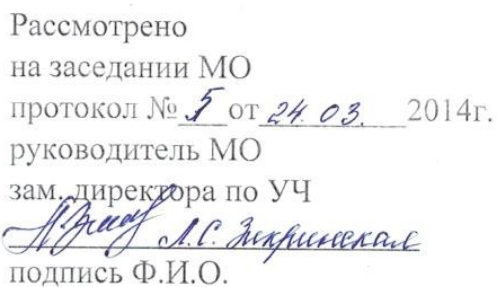 Рассмотрено
на заседании МО
протокол № 5 от 24.03. 2014г.
руководитель МО
зам. директора по УЧ
Л.С.
подпись Ф.И.О.